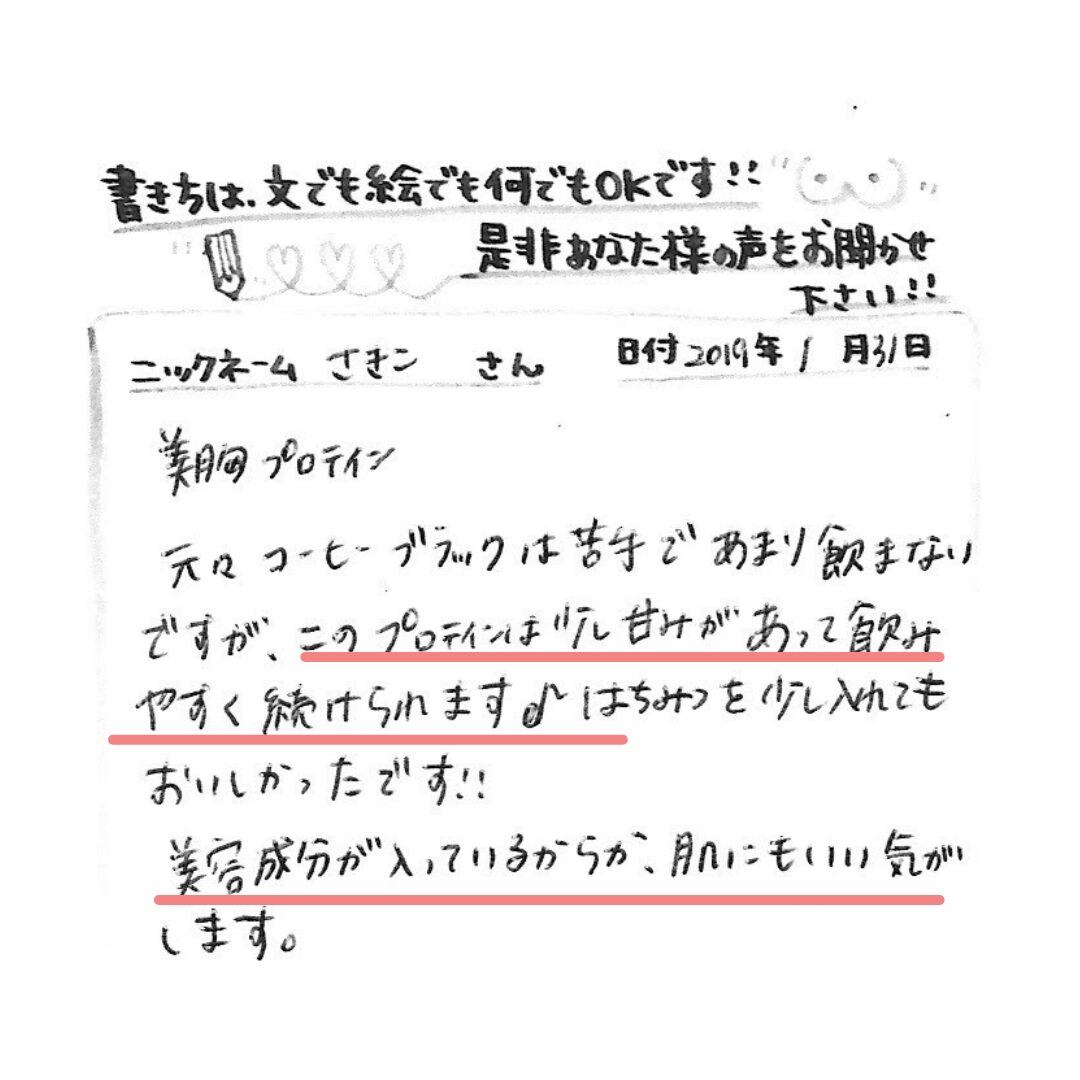 書きちは、文でも絵でも何でもOKです!!
是非あなた様の声をお聞かせ
下さい!!
ニックネーム さきこ さん 日付 2019年 1月31日
美胸プロテイン
元々コーヒーブラックは苦手であまり飲まない
ですが、このプロテインは少し甘みがあって飲み
やすく続けられます♪はちみつを少し入れても
おいしかったです!!
美容成分が入っているからか、肌にもいい気が
します。